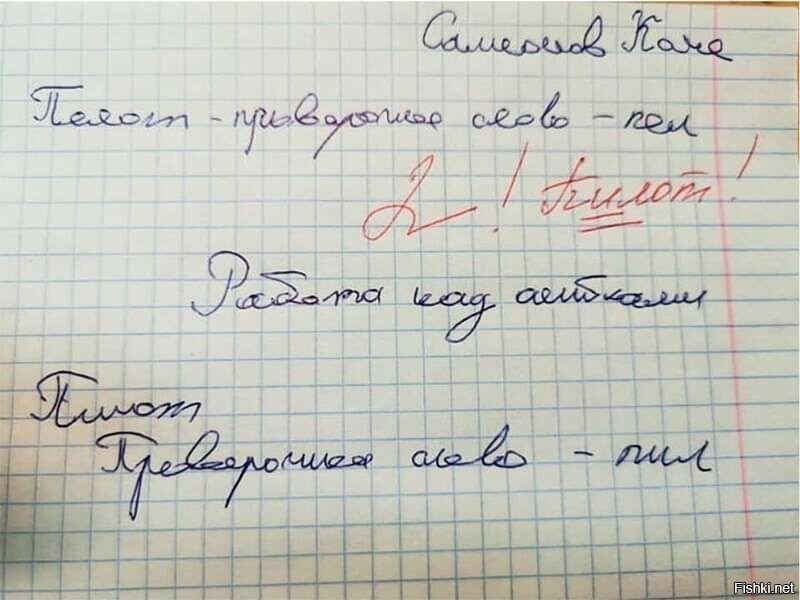 Самсонов Коле
Пелот - приверочное слово - пел
2! Пилот!
Работа над ашибками
Пилот
Преверочное слово - пил
Fishki.net